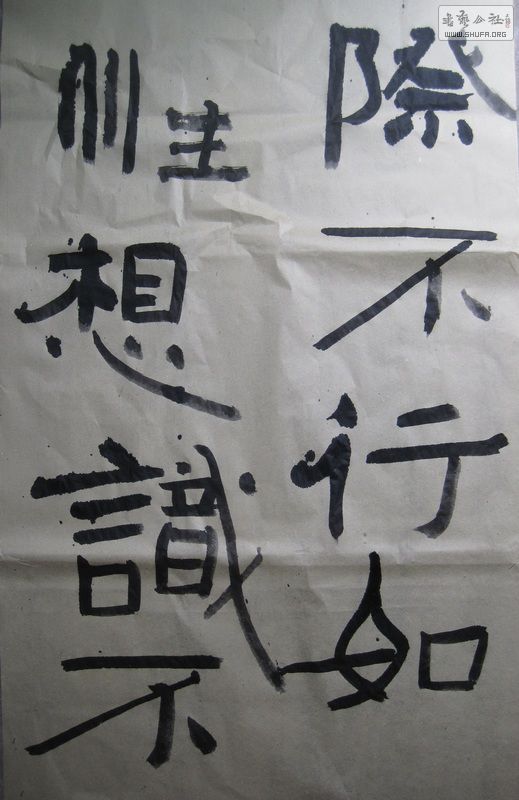 際不行如
想識不
書藝公社
WWW.SHUFA.ORG